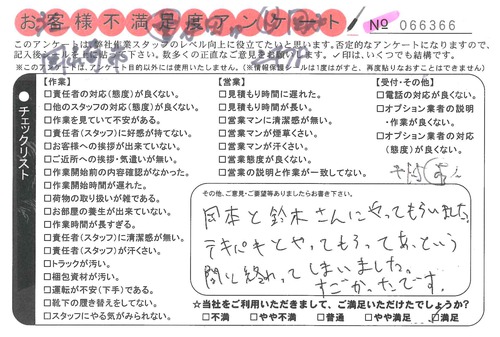 お客様不満足度アンケート
№ 066366
このアンケートは弊社作業スタッフのレベル向上に役立てたいと思います。否定的なアンケートになりますので、
記入後シールを貼って下さい。数多くの正直なご意見をお聞かせ下さいませ。✓印は、いくつでも結構です。
※このアンケートは、アンケート目的以外には使用いたしません。(※情報保護シールは1度はがすと、再度貼りなおすことはできません)
チェックリスト
【作業】
□責任者の対応(態度)が良くない。
□他のスタッフの対応(態度)が良くない。
□作業を見ていて不安がある。
□責任者(スタッフ)に好感が持てない。
□お客様への挨拶が出来ていない。
□ご近所への挨拶・気遣いが無い。
□作業開始前の内容確認がなかった。
□作業開始時間が遅れた。
□荷物の取り扱いが雑である。
□お部屋の養生が出来ていない。
□作業時間が長すぎる。
□責任者(スタッフ)に清潔感が無い。
□責任者(スタッフ)が汗くさい。
□トラックが汚い。
□梱包資材が汚い。
□運転が不安(下手)である。
□靴下の履き替えをしてない。
□スタッフにやる気がみられない。
【営業】
□見積もり時間に遅れた。
□見積もり時間が長い。
□営業マンに清潔感が無い。
□営業マンが煙草くさい。
□営業マンが汗くさい。
□営業態度が良くない。
□営業の説明と作業が一致してない。
【受付・その他】
□電話の対応が良くない。
□オプション業者の説明
・作業が良くない。
□オプション業者の対応
(態度)が良くない。
その他、ご意見・ご要望等ありましたらお書き下さい。
岡本と鈴木さんにやってもらいました。
テキパキとやってもらってあっという
間に終わってしまいました。
すごかったです。
☆当社をご利用いただきまして、ご満足いただけたでしょうか?
□不満 □やや不満 □普通 □やや満足 □満足